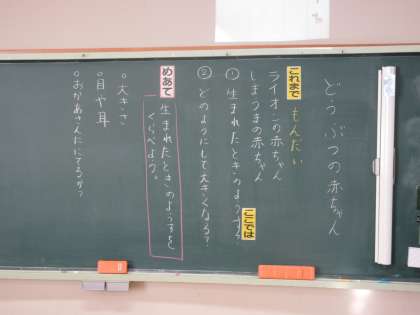 どうぶつの赤ちゃん
これまで もんだい
ライオンの赤ちゃん
しまうまの赤ちゃん
① 生まれたときのようすは？
ここでは
② どのようにして大きくなる？
めあて
生まれたときのようすを
くらべよう。
○大きさ
○目や耳
○おかあさんににてるか？